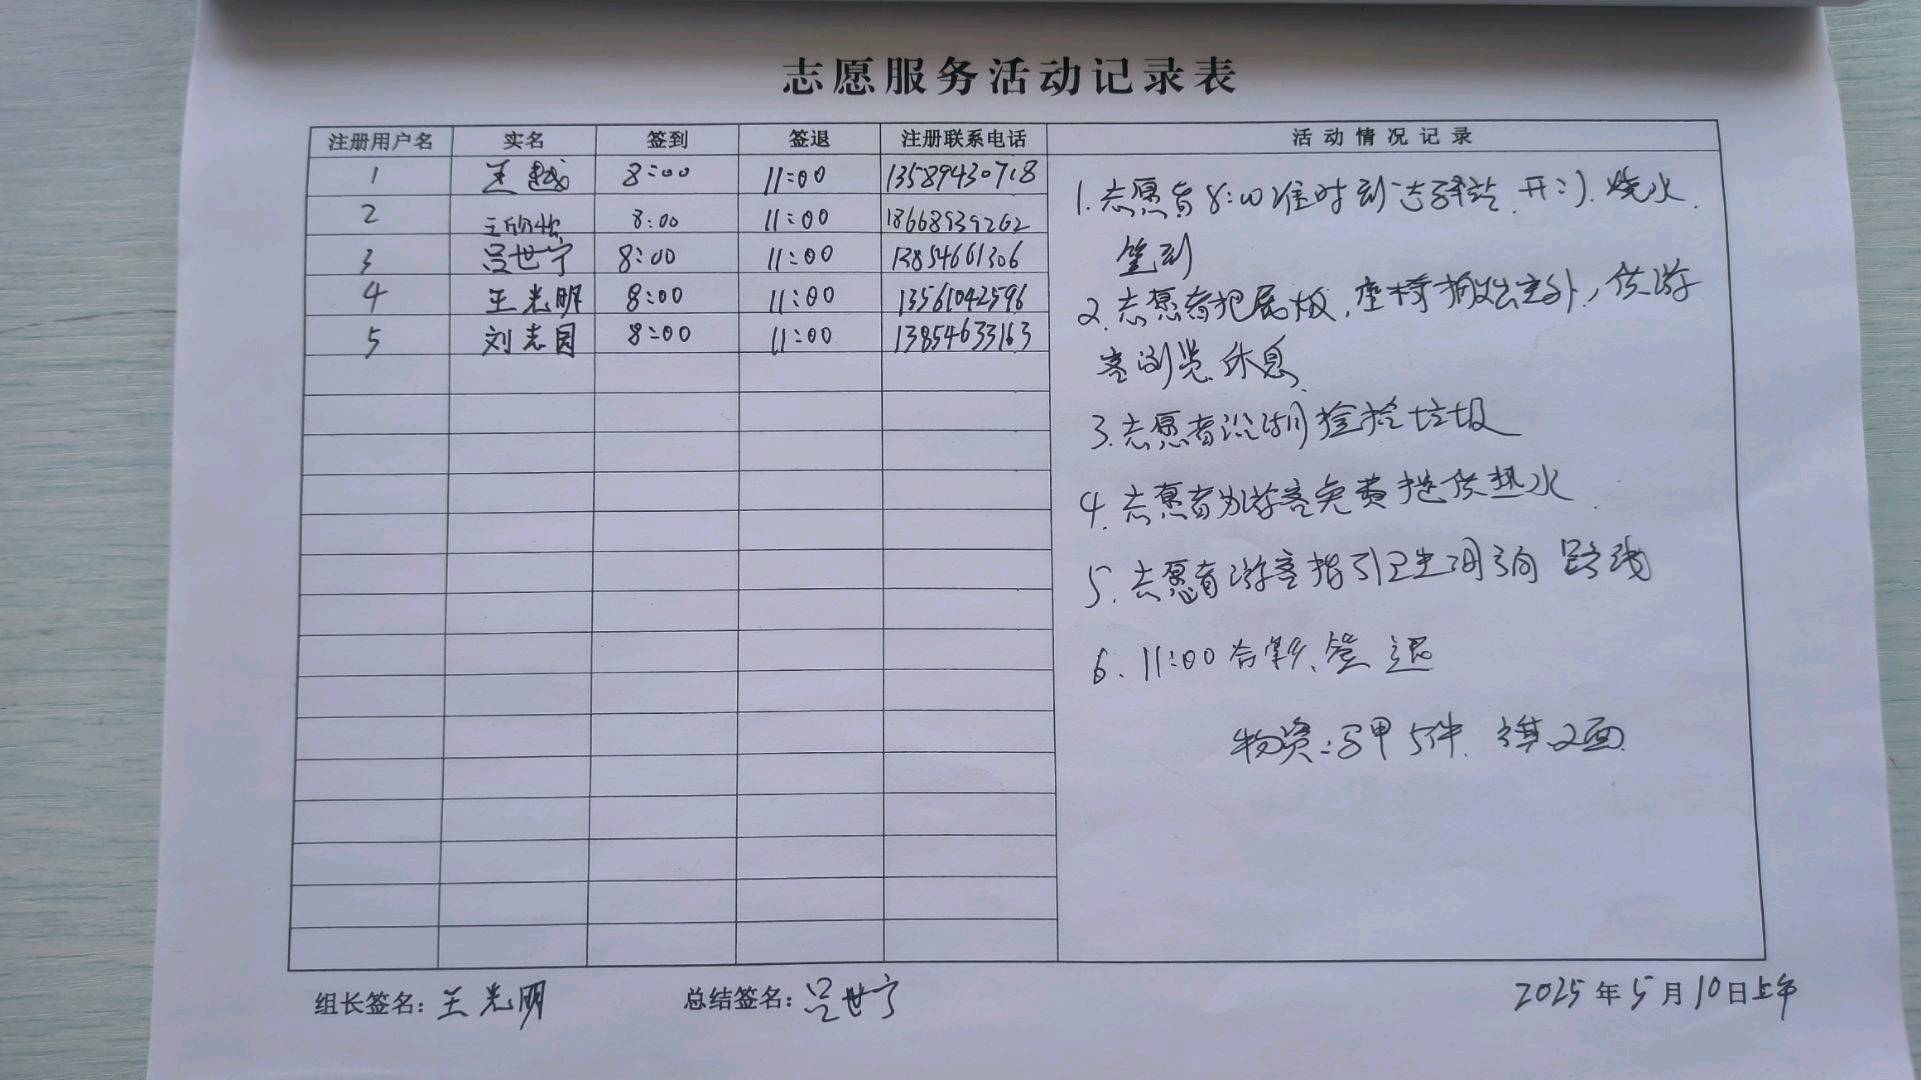 志愿服务活动记录表
注册用户名 实名 签到 签退 注册联系电话 活动情况记录
1 王越 8:00 11:00 13589430718
2 王欣 8:00 11:00 18668939262
3 吕世宁 8:00 11:00 13854661306
4 王光明 8:00 11:00 13561042596
5 刘志国 8:00 11:00 13854633163
1.志愿者8:00准时到达驿站.开门.烧水.
签到
2.志愿者把展板,座椅搬出室外,供游
客浏览休息
3.志愿者沿湖捡拾垃圾
4.志愿者为游客免费提供热水
5.志愿者游客指引卫生间方向 路线
6.11:00合影、签退
物资:马甲5件.旗2面
组长签名:王光明 总结签名:吕世宁 2025年5月10日上午